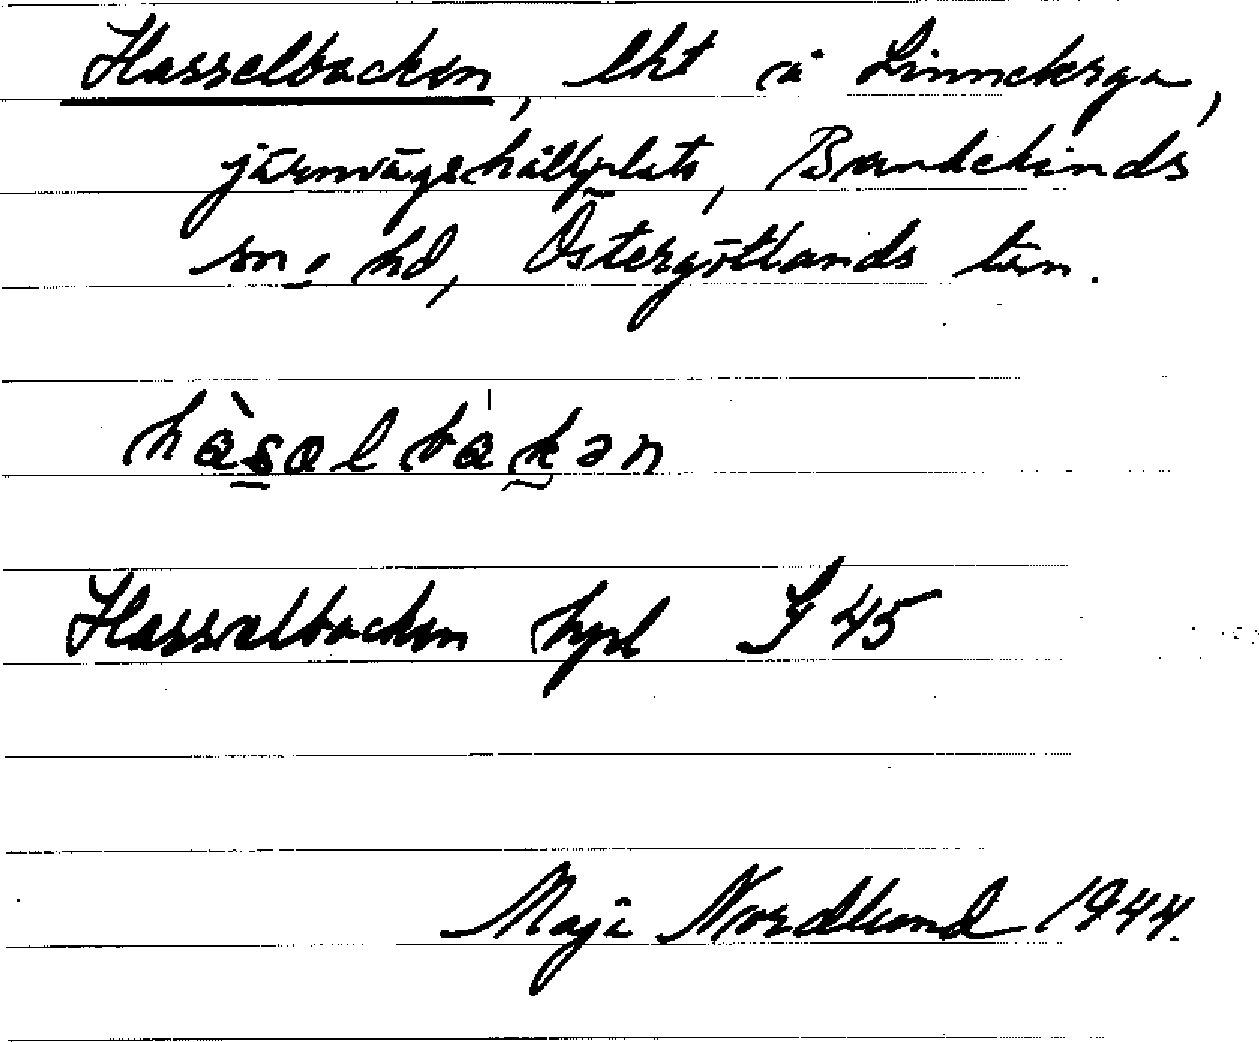 Hasselbacken, lht å Linnekerga,
järnvägshållplats, Bankekinds
sn o hd, Östergötlands län.
hàsəlbakən
Hasselbacken hpl J 45
Maja Nordlund 1944.